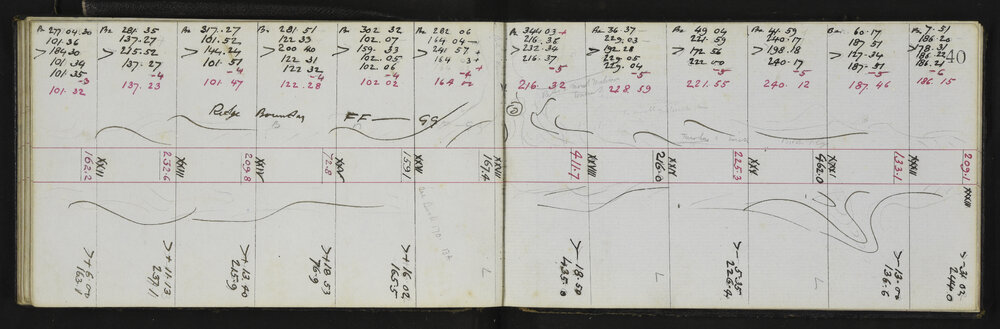 Bs 277 04.30
101.36
> 184.30
101.34
101.35
-3
101.32
Bs 281.35
137.27
> 225.52
137.27
-4
137.23
Bs 317.27
101.52
> 144.24
101.51
-4
101.47
Bs 281 51
122 33
> 200 40
122 31
122 32
-4
122.28
Bs 302 32
102.07
> 159.33
102.05
102.06
-4
102 02
Bs 282 06
164 04
> 241 57 +
164 03 +
-4
164
Bs 344 03 +
216.36
> 232.34
216.37
-5
216.32
Bs 36.37
229.03
> 192 28
229.05
229.04
-5
228 59
Bs 49 04
221.59
> 172 56
222 00
-5
221.55
Bs 41.59
240.17
> 198.18
240.17
-5
240.12
Bs 60.17
187 51
> 127.34
187.51
-5
187.46
Bs 7.51
186.20
> 178.31
186.22
186.21
-6
186.15
40
Ridge Boundary FF — GG
XXII
162.2
XXIII
232.6
XXIV
209.8
XXV
72.8
XXVI
159.1
XXVII
167.4
XXVIII
411.7
216.0
XXX
225.3
XXXI
462.0
XXXII
133.1
XXXIII
209.1
L
L
L
> + 6 00
163.1
> + 11.13
237.1
> + 13.40
215.9
> + 18 53
76.9
> + 16 02
165.5
> - 18 50
435.0
> - 5.35
226.4
> - 13.00
136.6
> - 31 02
244.0